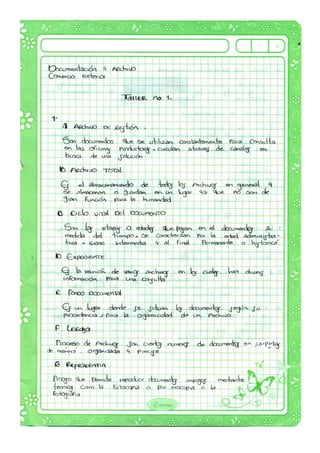 Documentación & Archivo
Comercio exterior
Taller no 1.
1-
A Archivo de gestión.
Son documentos que se utilizan constantemente para consulta
en las oficinas productoras - circulan atraves de canales en
busca de una solución
B Archivo TOTAL
Es el almacenamiento de todos los Archivos en general q
se almacenan o guardan en un lugar ya que no son de
gran función para la humanidad
C Ciclo vital del DOCUMENTO
Son las etapas o edades que pasan en el documento a
medida del tiempo, se caracterizan por la edad administra-
tiva = activo intermedia y al final Permanente o historica
D EXPEDIENTE
Es la reunión de varios archivos en los cuales hay
información para una consulta
E Fondo documental
Es un lugar donde se sitúan los documentos según su
procedencia y para la organización de un Archivo
F Legajo
Proceso de Archivos son cierto numero de documentos en carpetas
de manera organizada y
G Reprografia
Proceso que permite reproducir documentos mediante
técnicas como la fotocopia o por la
fotografia